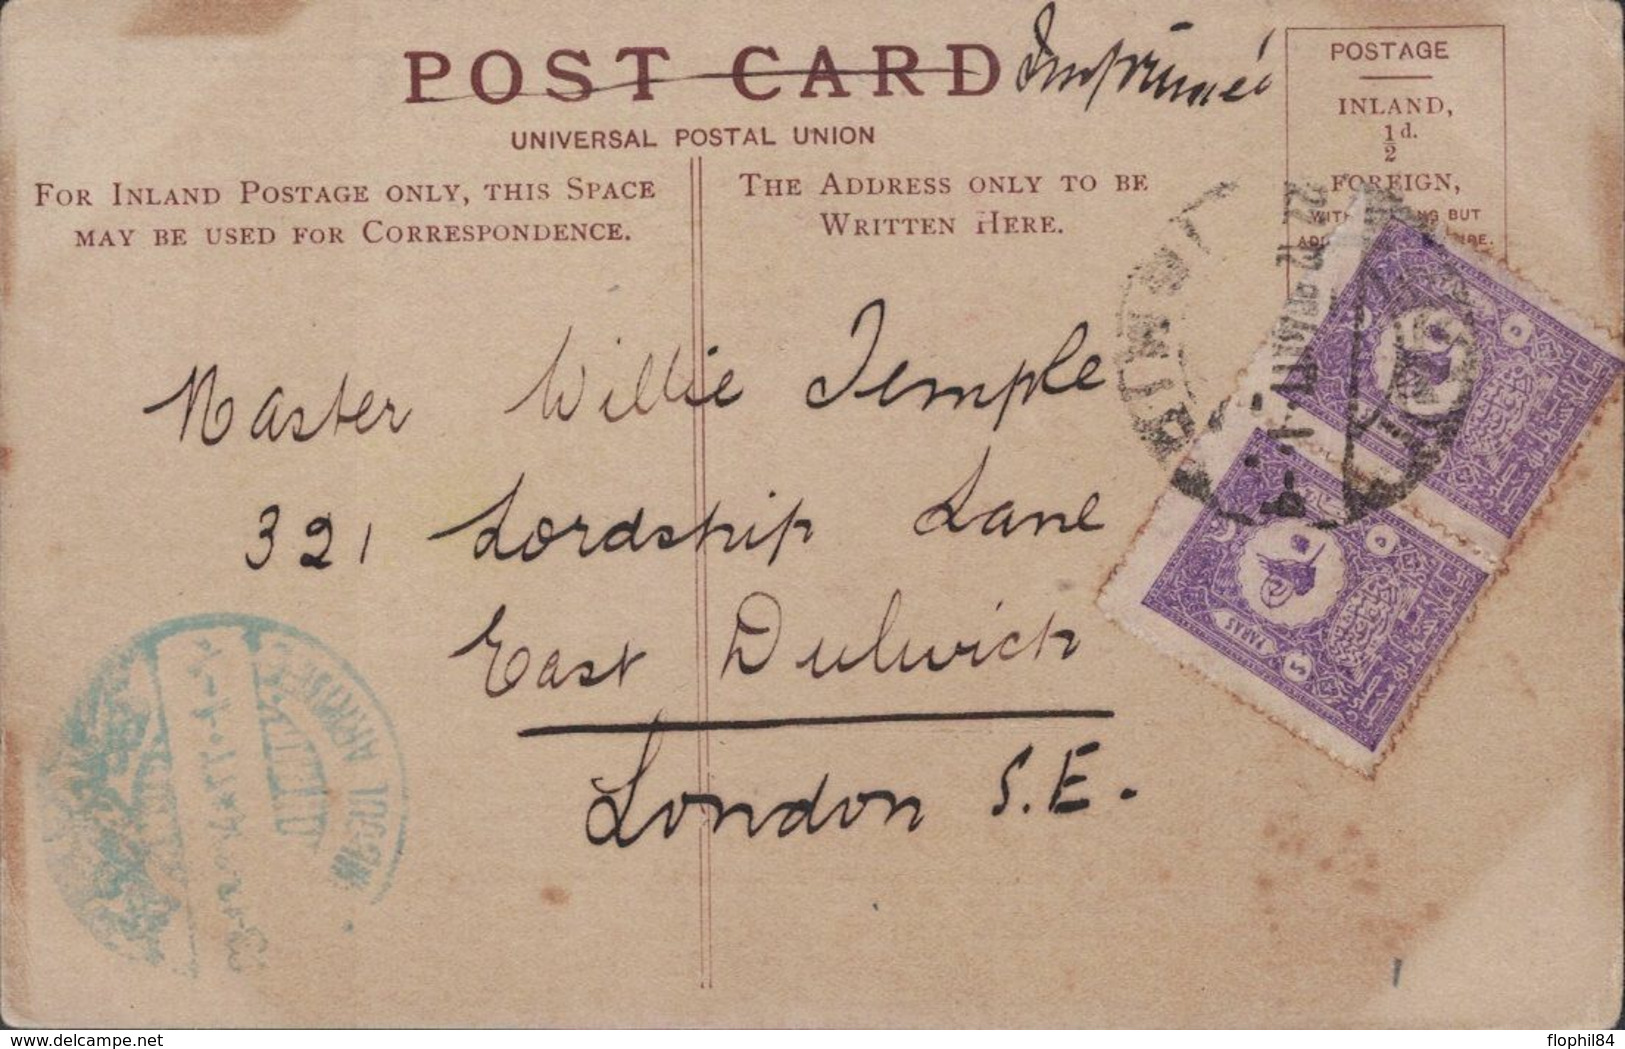 POST CARD Imprimé
UNIVERSAL POSTAL UNION
FOR INLAND POSTAGE ONLY, THIS SPACE
MAY BE USED FOR CORRESPONDENCE.
THE ADDRESS ONLY TO BE
WRITTEN HERE.
POSTAGE
INLAND,
½d.
FOREIGN,
Master Willie Temple
321 Lordship Lane
East Dulwich
London S.E.
5 PARAS 5
delcampe.net
flophil84